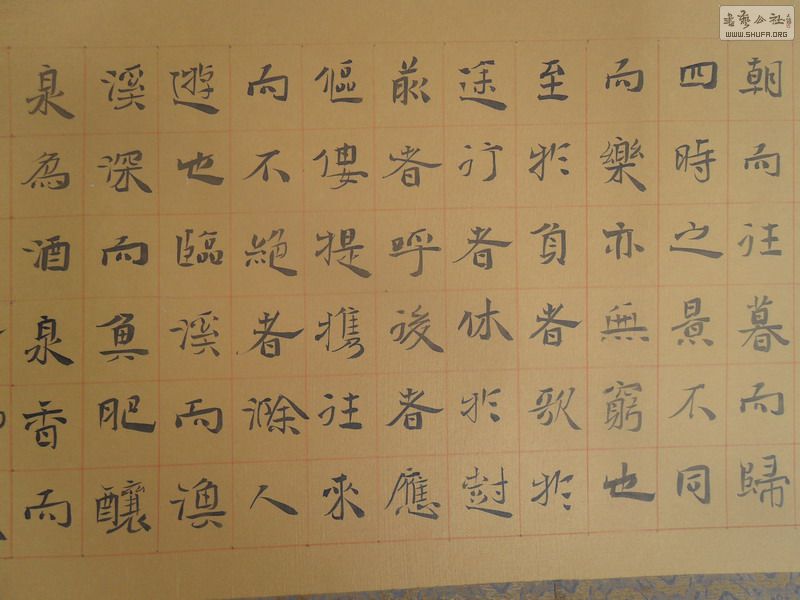 朝而往暮而歸
四時之景不同
而樂亦無窮也
至於負者歌於
途行者休於樹
前者呼後者應
傴僂提攜往來
而不絕者滁人
遊也臨溪而漁
溪深而魚肥釀
泉為酒泉香而
書藝公社
WWW.SHUFA.ORG